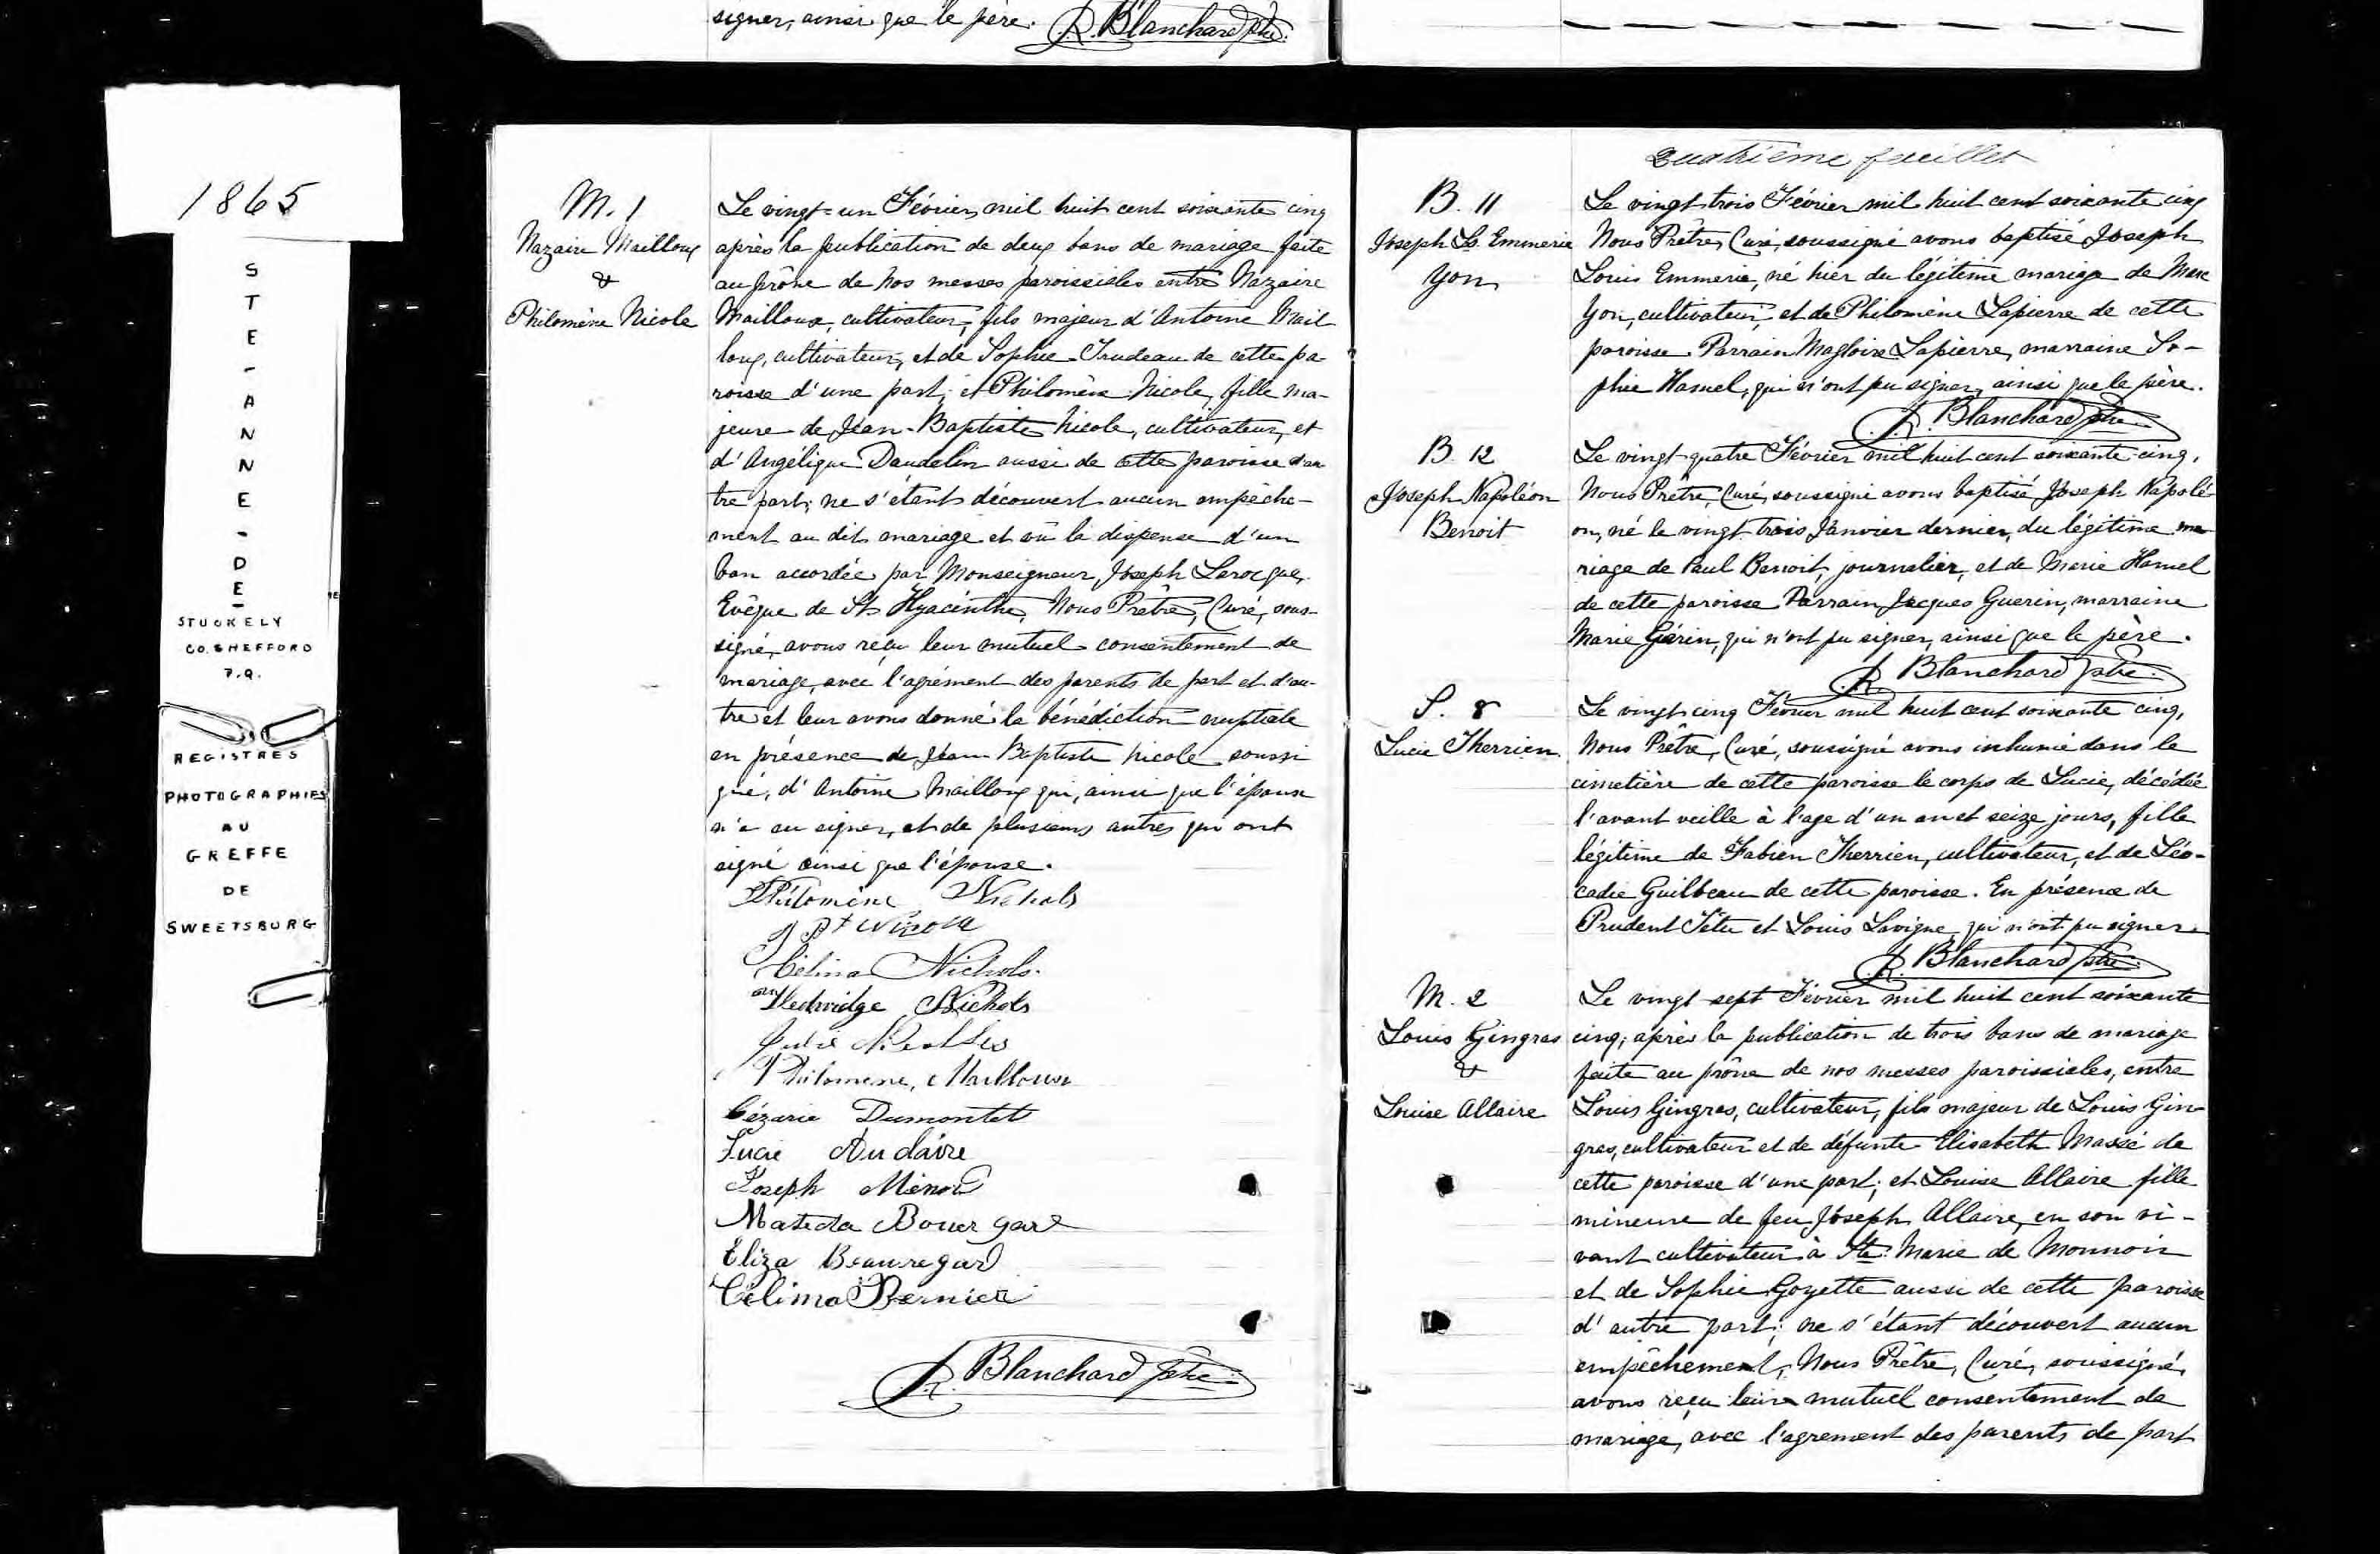 signer, ainsi que le père. R. Blanchard Ptre.
1865
STE-ANNE-DE-
STUCKELY
CO. SHEFFORD
P.Q.
REGISTRES
PHOTOGRAPHIES
AU
GREFFE
DE
SWEETSBURG
M. 1
Nazaire Mailloux
&
Philomène Nicole
Le vingt-un Février mil huit cent soixante cinq
après la publication de deux bans de mariage faite
au prône de nos messes paroissiales entre Nazaire
Mailloux, cultivateur, fils majeur d'Antoine Mail
loux, cultivateur, et de Sophie Trudeau de cette pa-
roisse d'une part; et Philomène Nicole, fille ma-
jeure de Jean-Baptiste Nicole, cultivateur, et
d'Angélique Daudelin aussi de cette paroisse d'au
tre part; ne s'étant découvert aucun empêche-
ment au dit mariage et vû la dispense d'un
ban accordée par Monseigneur Joseph Larocque,
Evêque de St Hyacinthe, Nous Prêtre, Curé, sous-
signé, avons reçu leur mutuel consentement de
mariage, avec l'agrément des parents de part et d'au-
tre et leur avons donné la bénédiction nuptiale
en présence de Jean-Baptiste Nicole soussi
gné, d'Antoine Mailloux qui, ainsi que l'époux
n'a su signer, et de plusieurs autres qui ont
signé ainsi que l'épouse.
Philomène Nichols
J Bt Nicole
Célina Nichols.
Hedwidge Nichols
Julie
Philomene, Mailloux
Cézarie Dumontet
Lucie Audaire
Joseph Ménard
Matilda Bouergard
Eliza Beauregard
Célima Bernier
R. Blanchard Ptre.
Quatrième feuillet
B. 11
Joseph Ls. Emmerie
Yon
Le vingt trois Février mil huit cent soixante cinq
Nous Prêtre, Curé, soussigné avons baptisé Joseph
Louis Emmerie, né hier du légitime mariage de Marc
Yon, cultivateur, et de Philomène Lapierre de cette
paroisse. Parrain Magloire Lapierre, marraine So-
phie Hamel, qui n'ont pu signer, ainsi que le père.
R. Blanchard Ptre
B. 12
Joseph Napoléon
Benoit
Le vingt-quatre Février mil huit cent soixante cinq,
Nous Prêtre, Curé, soussigné avons baptisé Joseph Napolé-
on, né le vingt trois Janvier dernier, du légitime ma
riage de Paul Benoit, journalier, et de Marie Hamel
de cette paroisse Parrain Jacques Guerin, marraine
Marie Guérin, qui n'ont pu signer, ainsi que le père.
R. Blanchard Ptre.
S. 8
Lucie Therrien
Le vingt cinq Février mil huit cent soixante cinq,
Nous Prêtre, Curé, soussigné avons inhumé dans le
cimetière de cette paroisse le corps de Lucie, décédée
l'avant veille à l'age d'un an et seize jours, fille
légitime de Fabien Therrien, cultivateur, et de Léo-
cadie Guilbeau de cette paroisse. En présence de
Prudent Tétu et Louis Lavigne, qui n'ont pu signer
R. Blanchard Ptre.
M. 2
Louis Gingras
&
Louise Allaire
Le vingt-sept Février mil huit cent soixante
cinq; après la publication de trois bans de mariage
faite au prône de nos messes paroissiales, entre
Louis Gingras, cultivateur, fils majeur de Louis Gin
gras, cultivateur et de défunte Elisabeth Massé de
cette paroisse d'une part; et Louise Allaire fille
mineure de feu Joseph Allaire, en son vi-
vant cultivateur à Ste Marie de Monnoir
et de Sophie Goyette aussi de cette paroisse
d'autre part; ne s'étant découvert aucun
empêchement, Nous Prêtre, Curé, soussigné,
avons reçu leur mutuel consentement de
mariage, avec l'agrement des parents de part